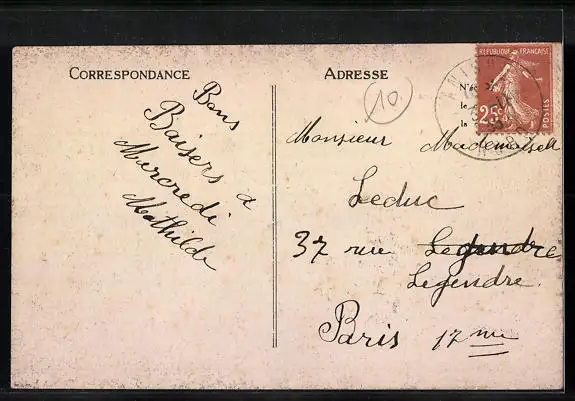 CORRESPONDANCE
Bons
Baisers a
Mercredi
Mathilde
ADRESSE
10.
REPUBLIQUE FRANÇAISE
25c
POSTES
Monsieur Mademoiselle
Leduc
37 rue Legendre
Legendre.
Paris 17 me